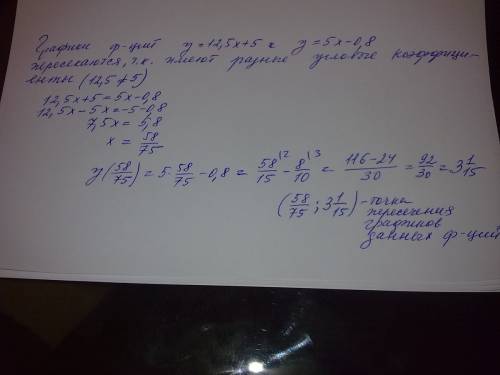 Графики ф-ций y=12,5x+5 и y=5x-0,8
пересекаются, т.к. имеют разные угловые коэффици-
енты (12,5≠5)
12,5x+5=5x-0,8
12,5x-5x=-5-0,8
7,5x=5,8
x = 58/75
y(58/75)=5·58/75-0,8= 58/15^{12} - 8/10^{13} = 116-24/30 = 92/30 = 3 1/15
(58/75; 3 1/15) - точка
пересечения
графиков
данных ф-ций